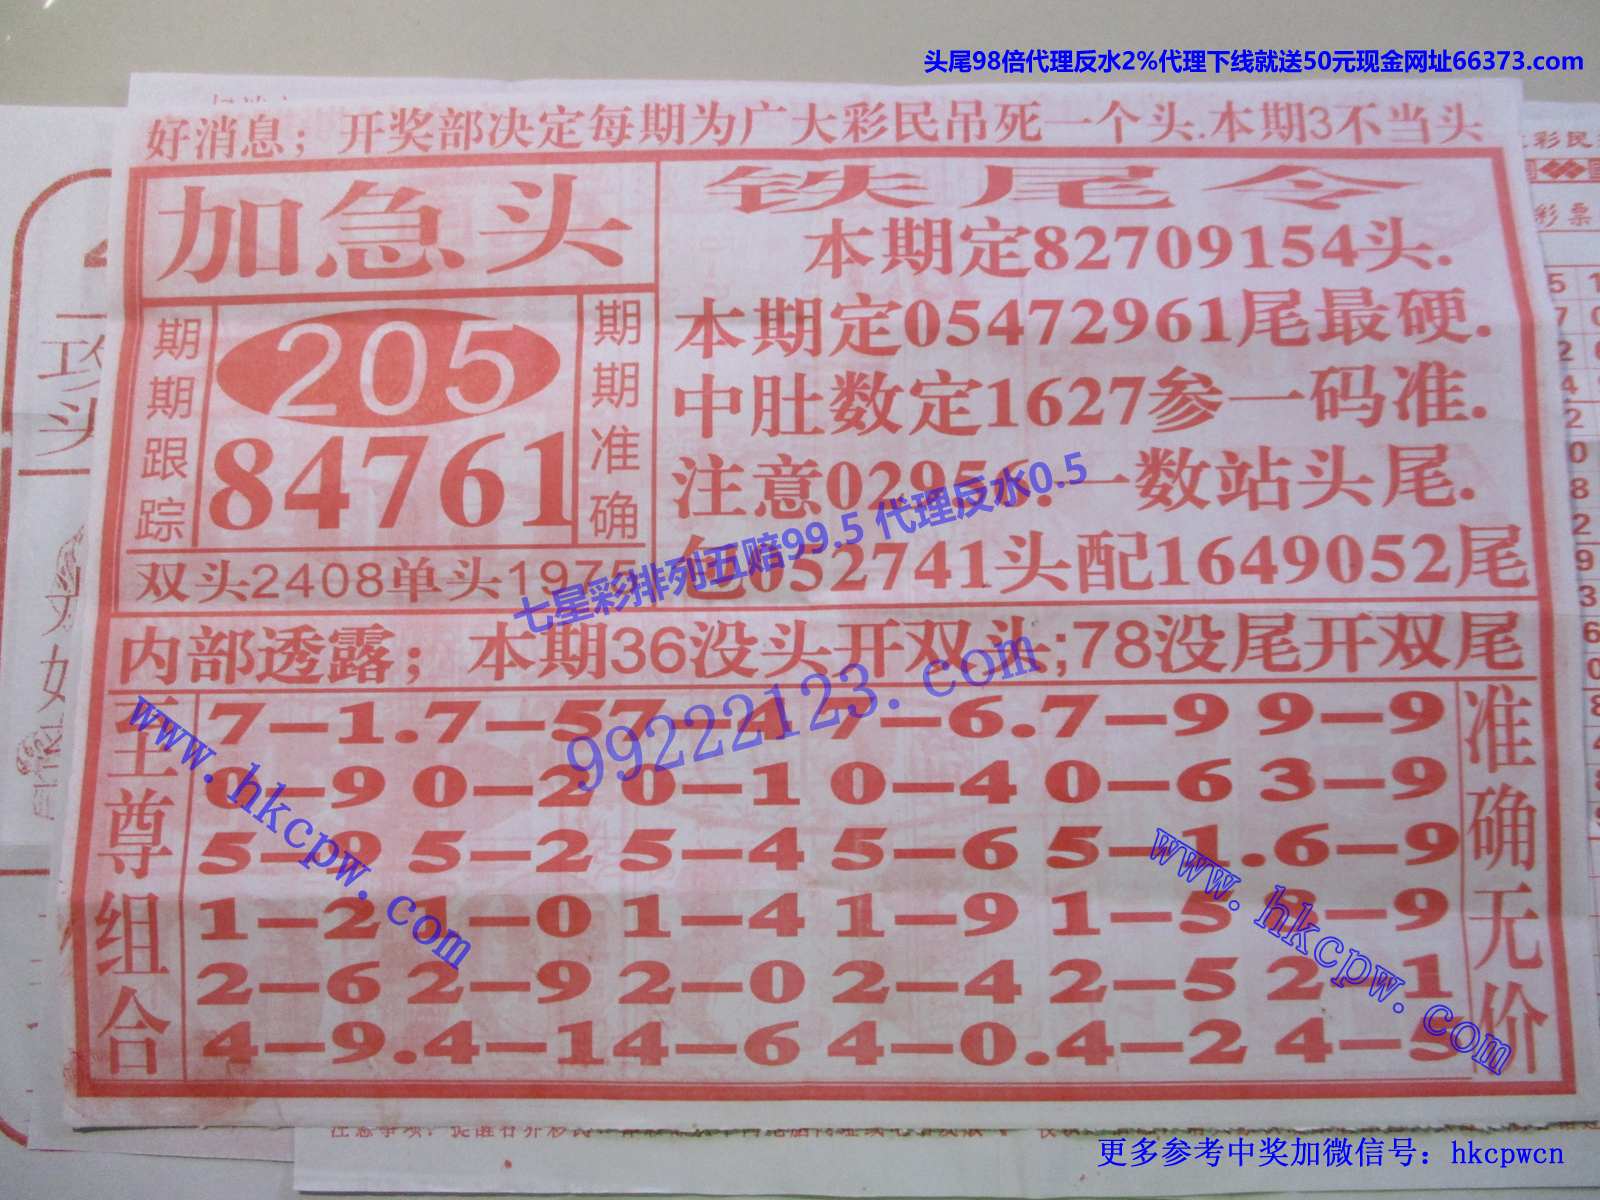 头尾98倍代理反水2%代理下线就送50元现金网址66373.com
好消息；开奖部决定每期为广大彩民吊死一个头.本期3不当头
加急头
铁尾令
本期定82709154头.
本期定05472961尾最硬.
中肚数定1627参一码准.
注意02956.一数站头尾.
包052741头配1649052尾
期期跟踪
205
84761
期期准确
双头2408单头197
七星彩排列五赔99.5 代理反水0.5
内部透露；本期36没头开双头;78没尾开双尾
99222123.com
至尊组合
7—1.7—57—4 7—6.7—9 9—9
0—9 0—2 0—1 0—4 0—6 3—9
5—9 5—2 5—4 5—6 5—1.6—9
1—2 1—0 1—4 1—9 1—5 8—9
2—6 2—9 2—0 2—4 2—5 2—1
4—9.4—14—6 4—0.4—2 4—5
准确无价
www.hkcpw.com
www.hkcpw.com
更多参考中奖加微信号：hkcpwcn